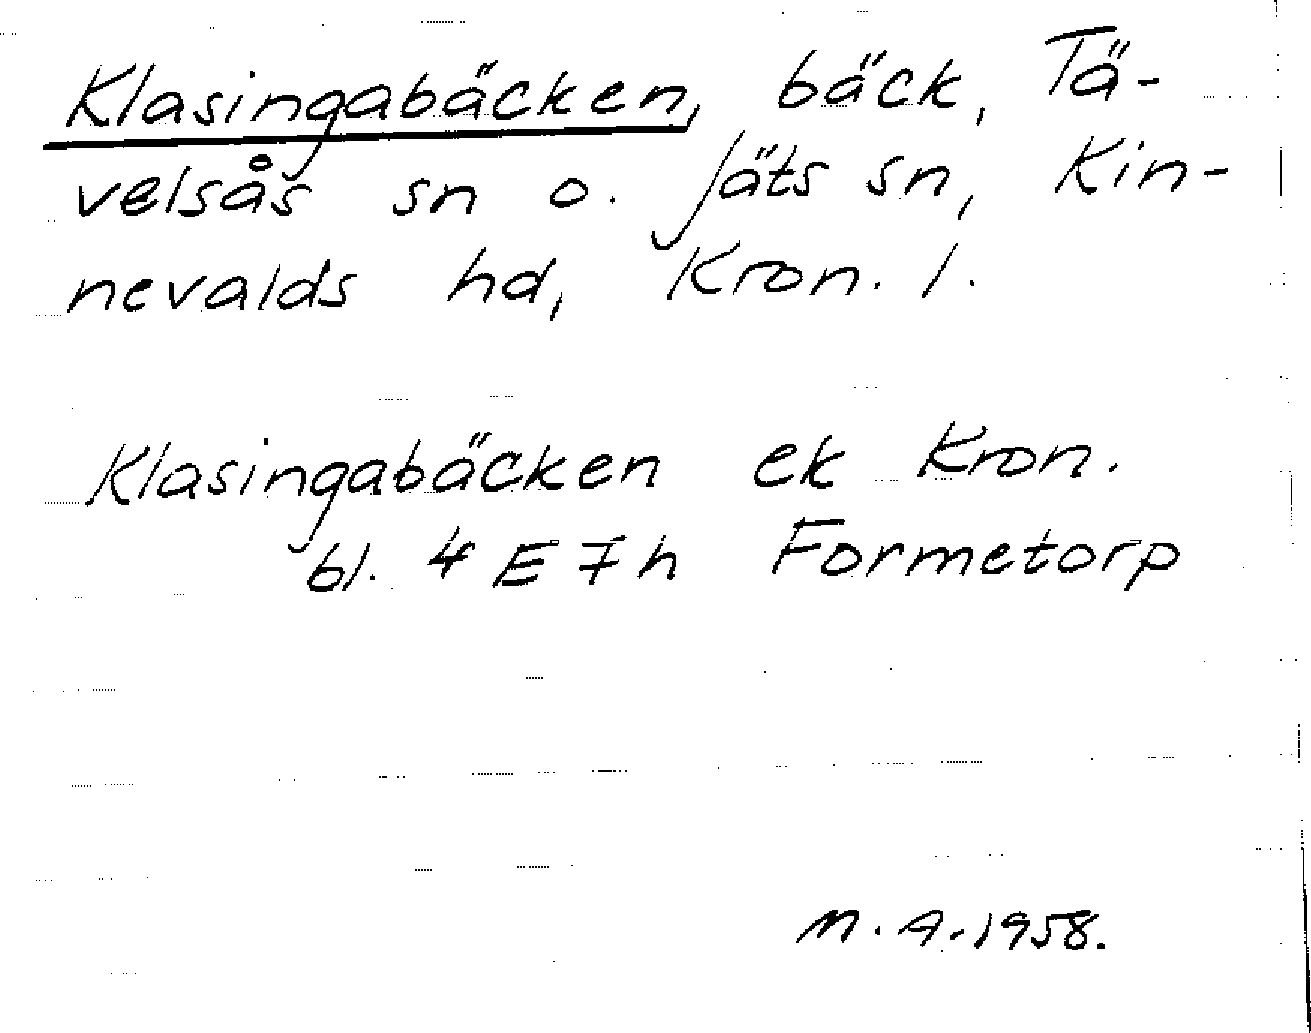 Klasingabäcken, bäck, Tä-
velsås sn o. Jäts sn, Kin-
nevalds hd, Kron. l.
Klasingabäcken ek Kron.
bl. 4 E 7 h Formetorp
M. A. 1958.